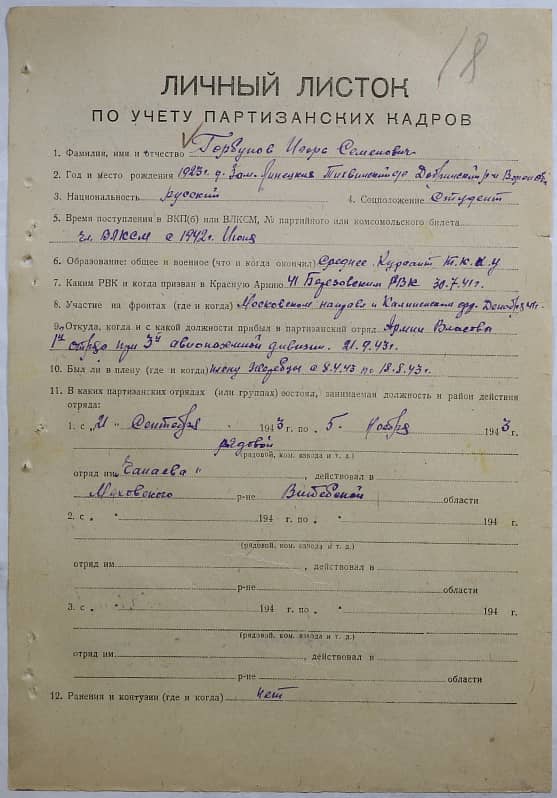 18
ЛИЧНЫЙ ЛИСТОК
ПО УЧЕТУ ПАРТИЗАНСКИХ КАДРОВ
1. Фамилия, имя и отчество Горбунов Игорь Семенович
2. Год и место рождения 1923 г. д. Доб р-н
3. Национальность русский 4. Соцположение Студент
5. Время поступления в ВКП(б) или ВЛКСМ, № партийного или комсомольского билета
чл. ВЛКСМ с 1942 г. Июня
6. Образование: общее и военное (что и когда окончил) Среднее. Курсант Т.К.К.У
7. Каким РВК и когда призван в Красную Армию 41 Березовским РВК 30.7.41 г.
8. Участие на фронтах (где и когда) Московском направл и Калининском фр. Декабря 41 г.
9. Откуда, когда и с какой должности прибыл в партизанский отряд Армии Власова
1й отряд при 3й авиополевой дивизии. 21.9.43 г.
10. Был ли в плену (где и когда) Жеребцы с 8.4.43 по 18.8.43 г.
11. В каких партизанских отрядах (или группах) состоял, занимаемая должность и район действия
отряда:
1. с „21" Сентября 1943 г. по „5. Ноября 1943 г.
рядовой
(рядовой, ком. взвода и т. д.)
отряд им. Чапаева " , действовал в
Меховского р-не Витебской области
2. с „ " 194 г. по „ " 194 г.
(рядовой, ком. взвода и т. д.)
отряд им. , действовал в
р-не области
3. с „ " 194 г. по „ " 194 г.
(рядовой, ком. взвода и т. д.)
отряд им. , действовал в
р-не области
12. Ранения и контузии (где и когда) нет